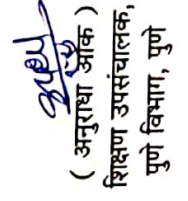 ( अनुराधा ओक )
शिक्षण उपसंचालक,
पुणे विभाग, पुणे